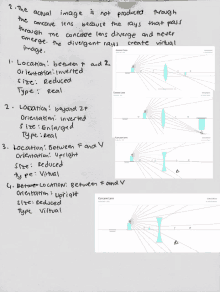 2. The actual image is not produced through
the concave lens because the rays that pass
through the concave lens diverge and never
emerge. the divergent rays create virtual
image.
1. Location: between F and 2
Orientation: Inverted
Size: Reduced
Type: Real
2 - Location: beyond 2F
Orientation: Inverted
Size: Enlarged
Type: Real
3. Location: Between F and V
Orientation: Upright
Size: Reduced
Type: Virtual
4. Location: Between F and V
Orientation: Upright
Size: Reduced
Type Virtual